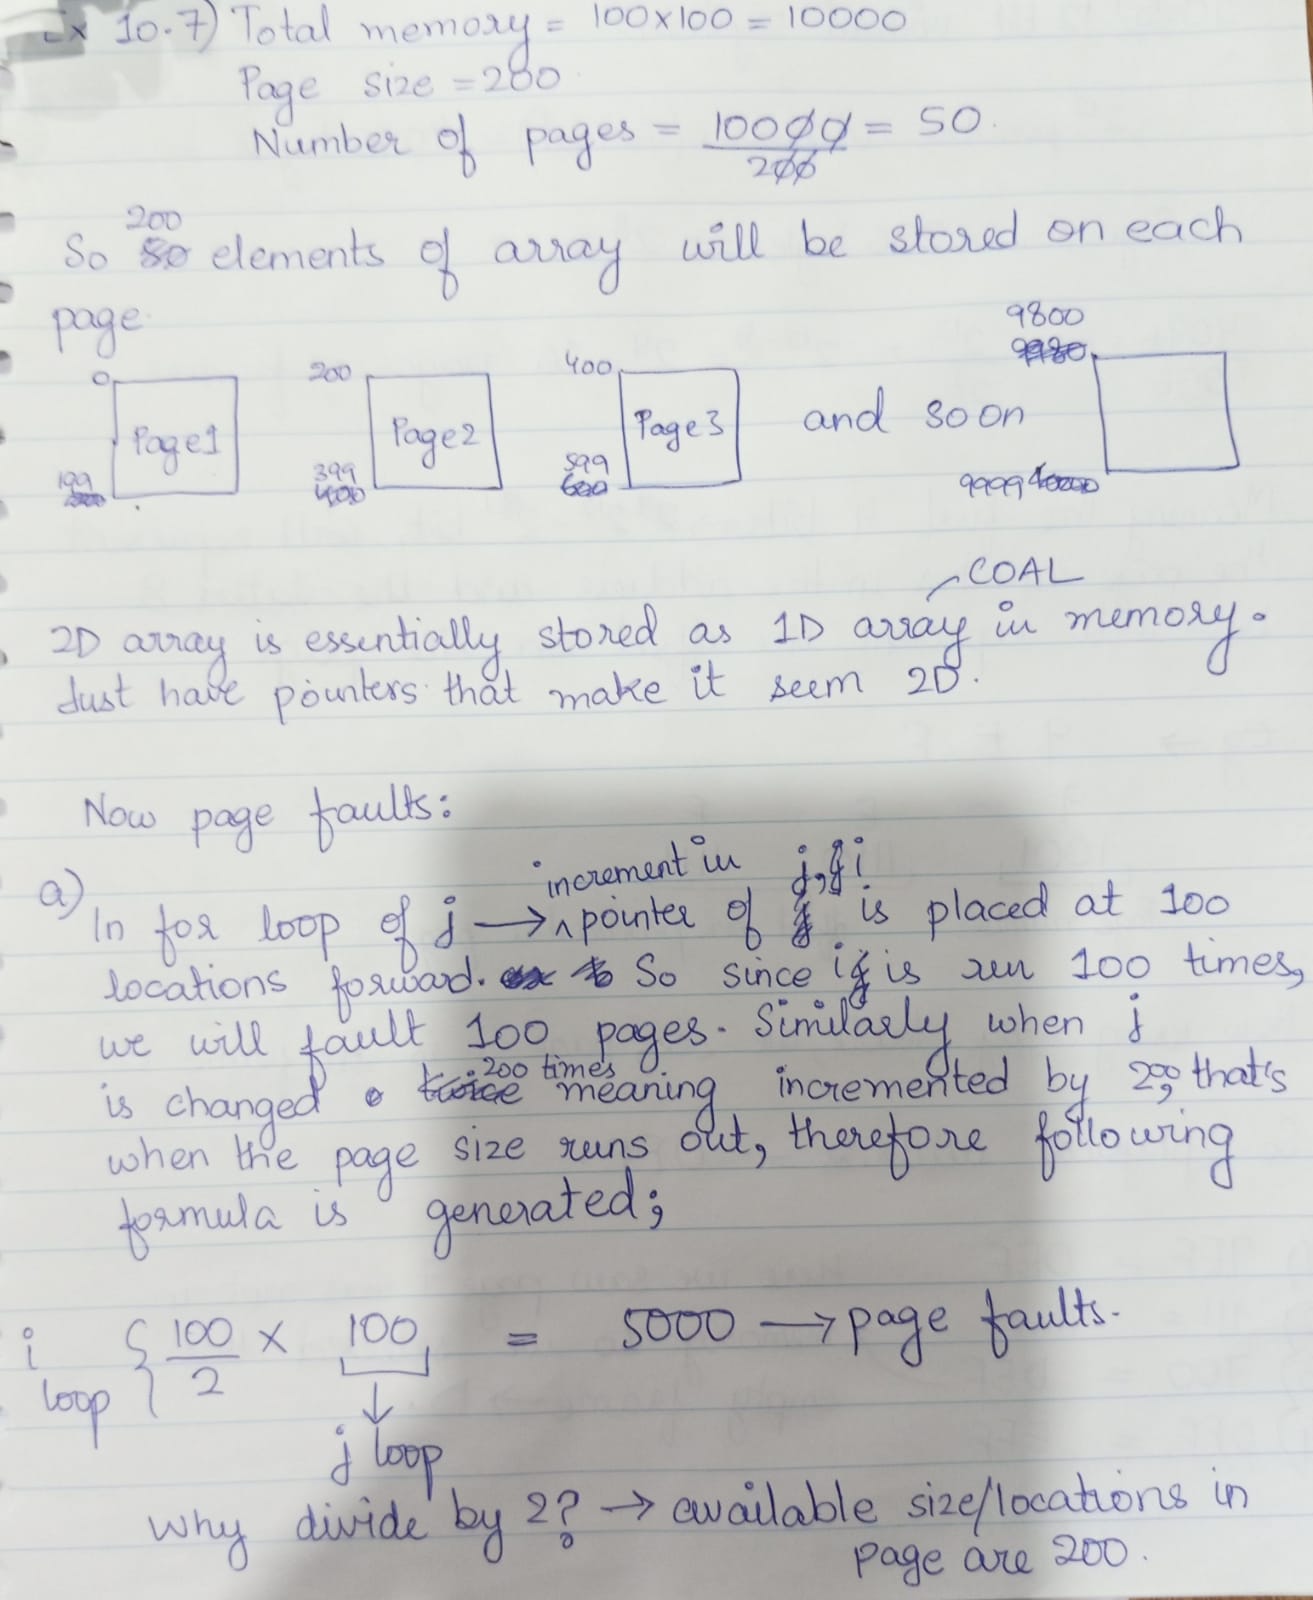 Ex 10.7) Total memory = 100x100 = 10000
Page size = 200.
Number of pages = 10000/200 = 50.
200
So 50 elements of array will be stored on each
page
0 199 Page1
200 399 400 Page2
400 599 600 Page3
and so on
9800 9999 10000
COAL
2D array is essentially stored as 1D array in memory.
Just have pointers that make it seem 2D.
Now page faults:
a)
increment in j, i
In for loop of j → ^ pointer of is placed at 100
locations forward. So since i is run 100 times,
we will fault 100 pages. Similarly when j
200 times
is changed twice meaning incremented by 200, that's
when the page size runs out, therefore following
formula is generated;
i loop { 100/2 x 100 = 5000 → page faults.
↓
j loop
Why divide by 2? → available size/locations in
page are 200.